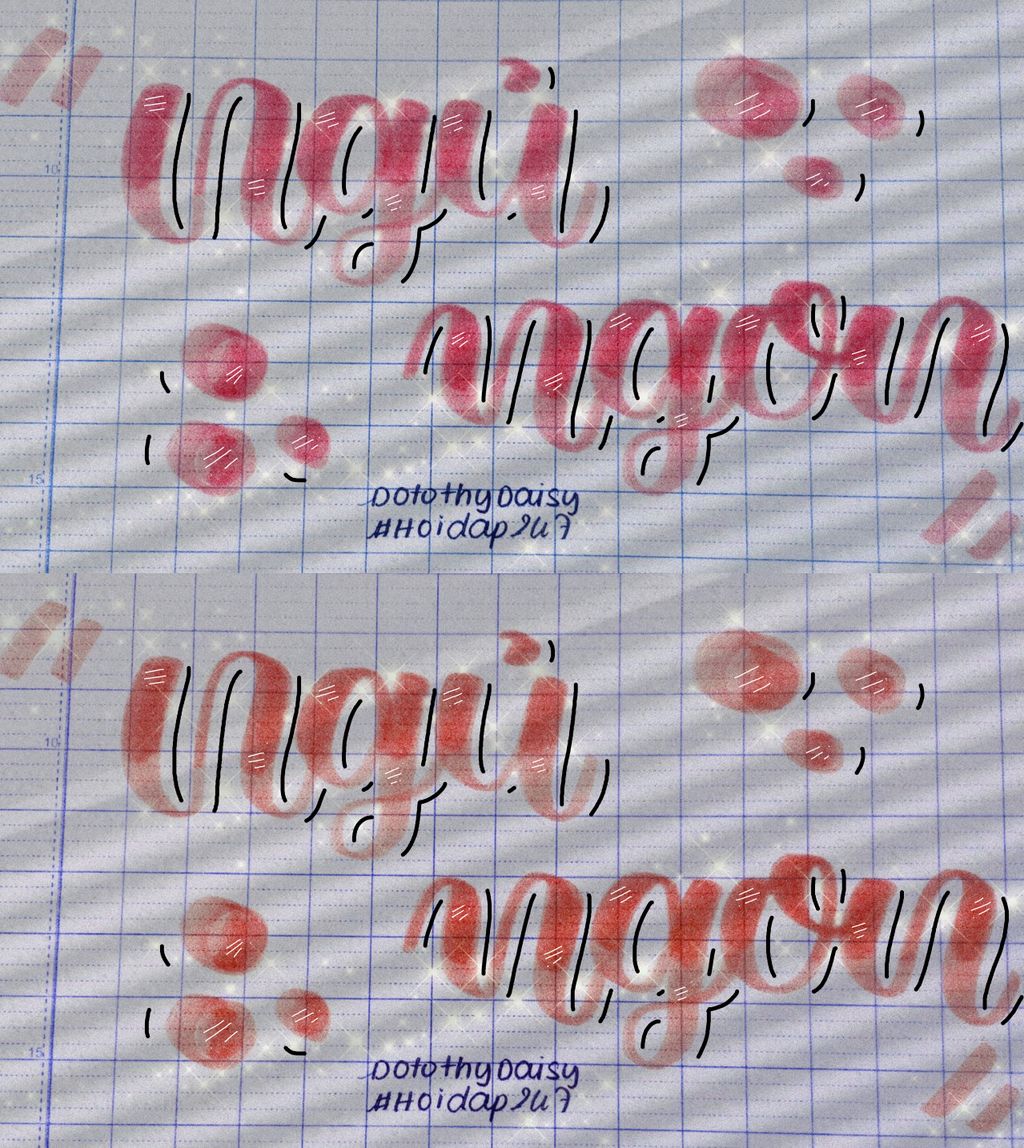 Ngủ
ngon
DorothyDaisy
#Hoidap247
10
15
Ngủ
ngon
DorothyDaisy
#Hoidap247
10
15